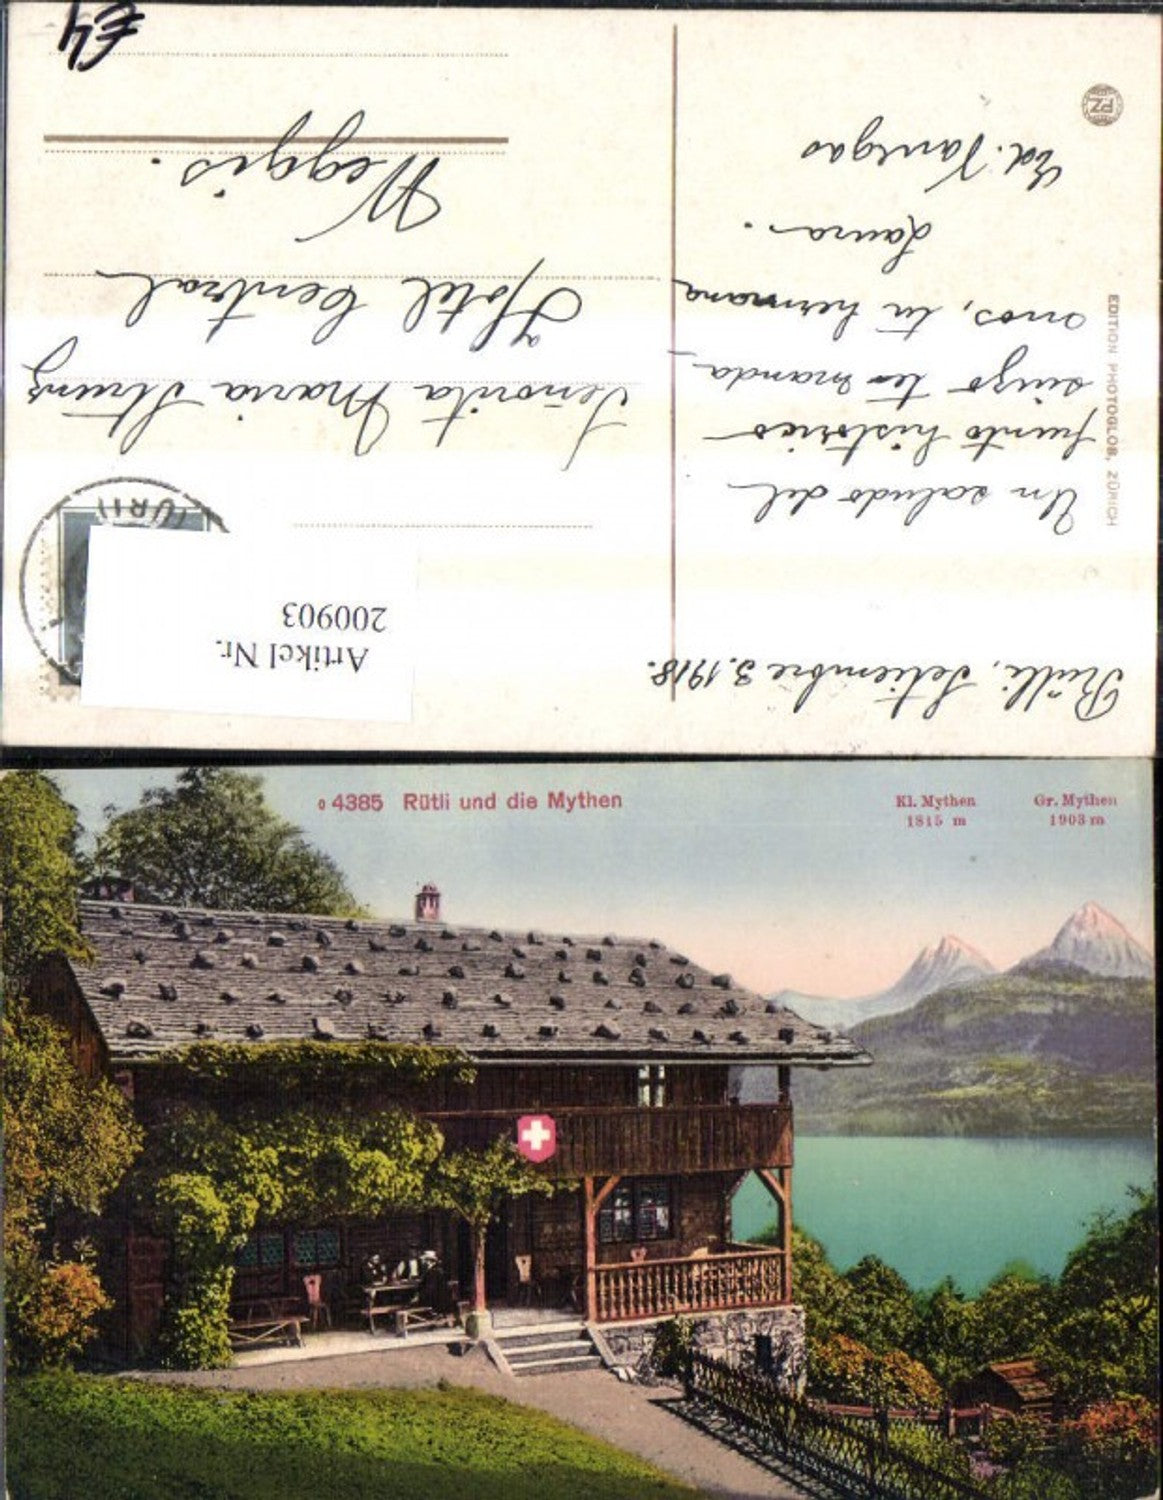 Rütli, Setiembre 3.1918.
Un saludo del
punto histórico
suizo te manda
mos, tu hermana
Laura.
Ed.
EDITION PHOTOGLOB, ZÜRICH
PZ
(URI)
Artikel Nr.
200903
Señorita Maria
Hotel Central
Weggis.
€4
o 4385 Rütli und die Mythen
Kl. Mythen
1815 m
Gr. Mythen
1903 m